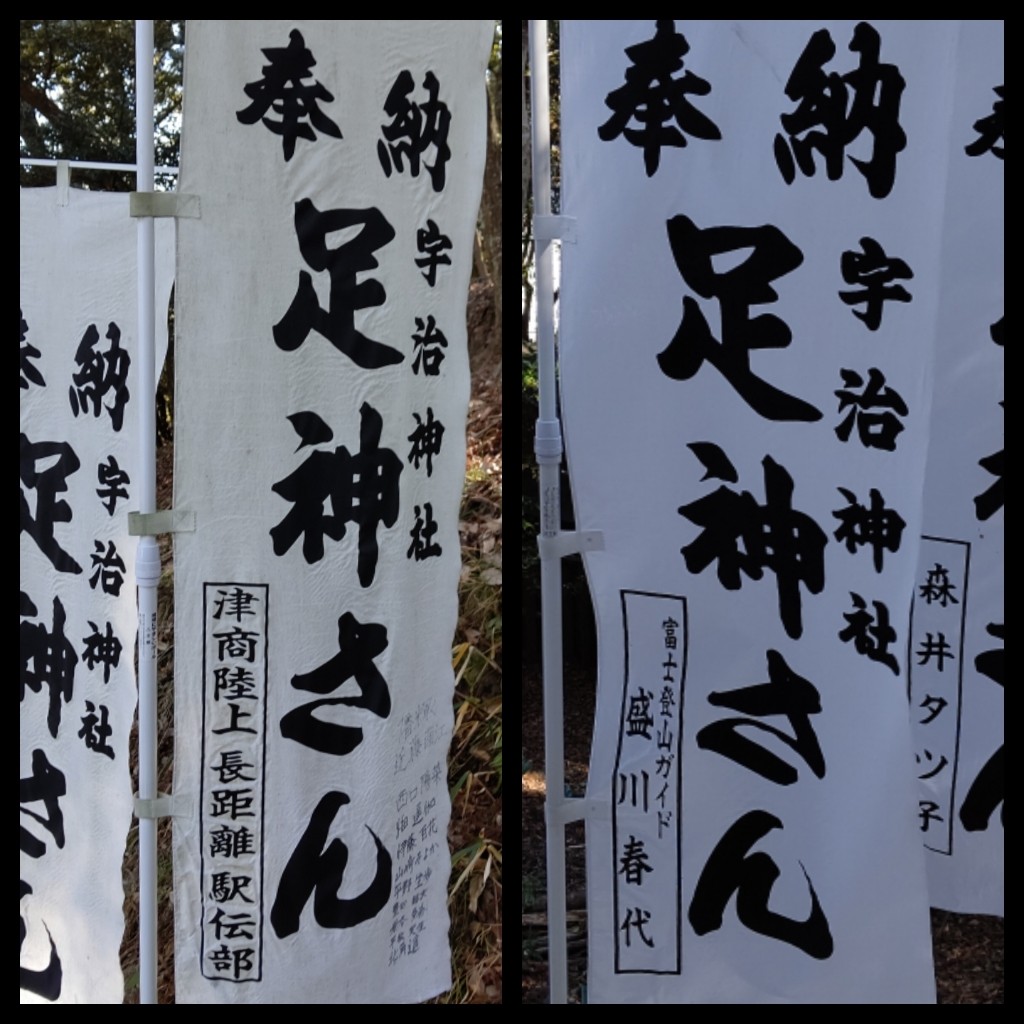 奉納
宇治神社
足神さん
津商陸上長距離駅伝部
納
宇治神社
足神さん
奉納
宇治神社
足神さん
富士登山ガイド
盛川春代
森井タツ子